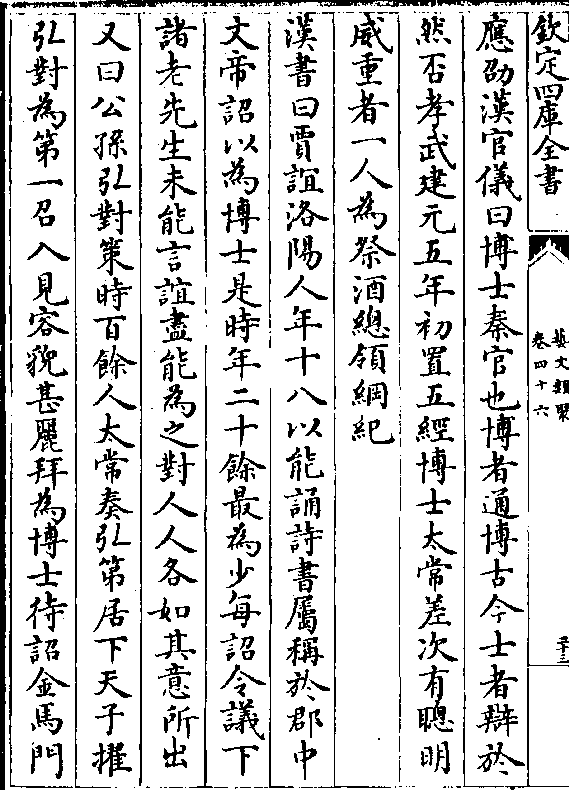 欽定四庫全書
藝文類聚
卷四十六
二十三
應劭漢官儀曰博士秦官也博者通博古今士者辯於
然否孝武建元五年初置五經博士太常差次有聰明
威重者一人為祭酒總領綱紀
漢書曰賈誼洛陽人年十八以能誦詩書屬稱於郡中
文帝詔以為博士是時年二十餘最為少每詔令議下
諸老先生未能言誼盡能為之對人人各如其意所出
又曰公孫弘對策時百餘人太常奏弘第居下天子擢
弘對為第一召入見容貌甚麗拜為博士待詔金馬門